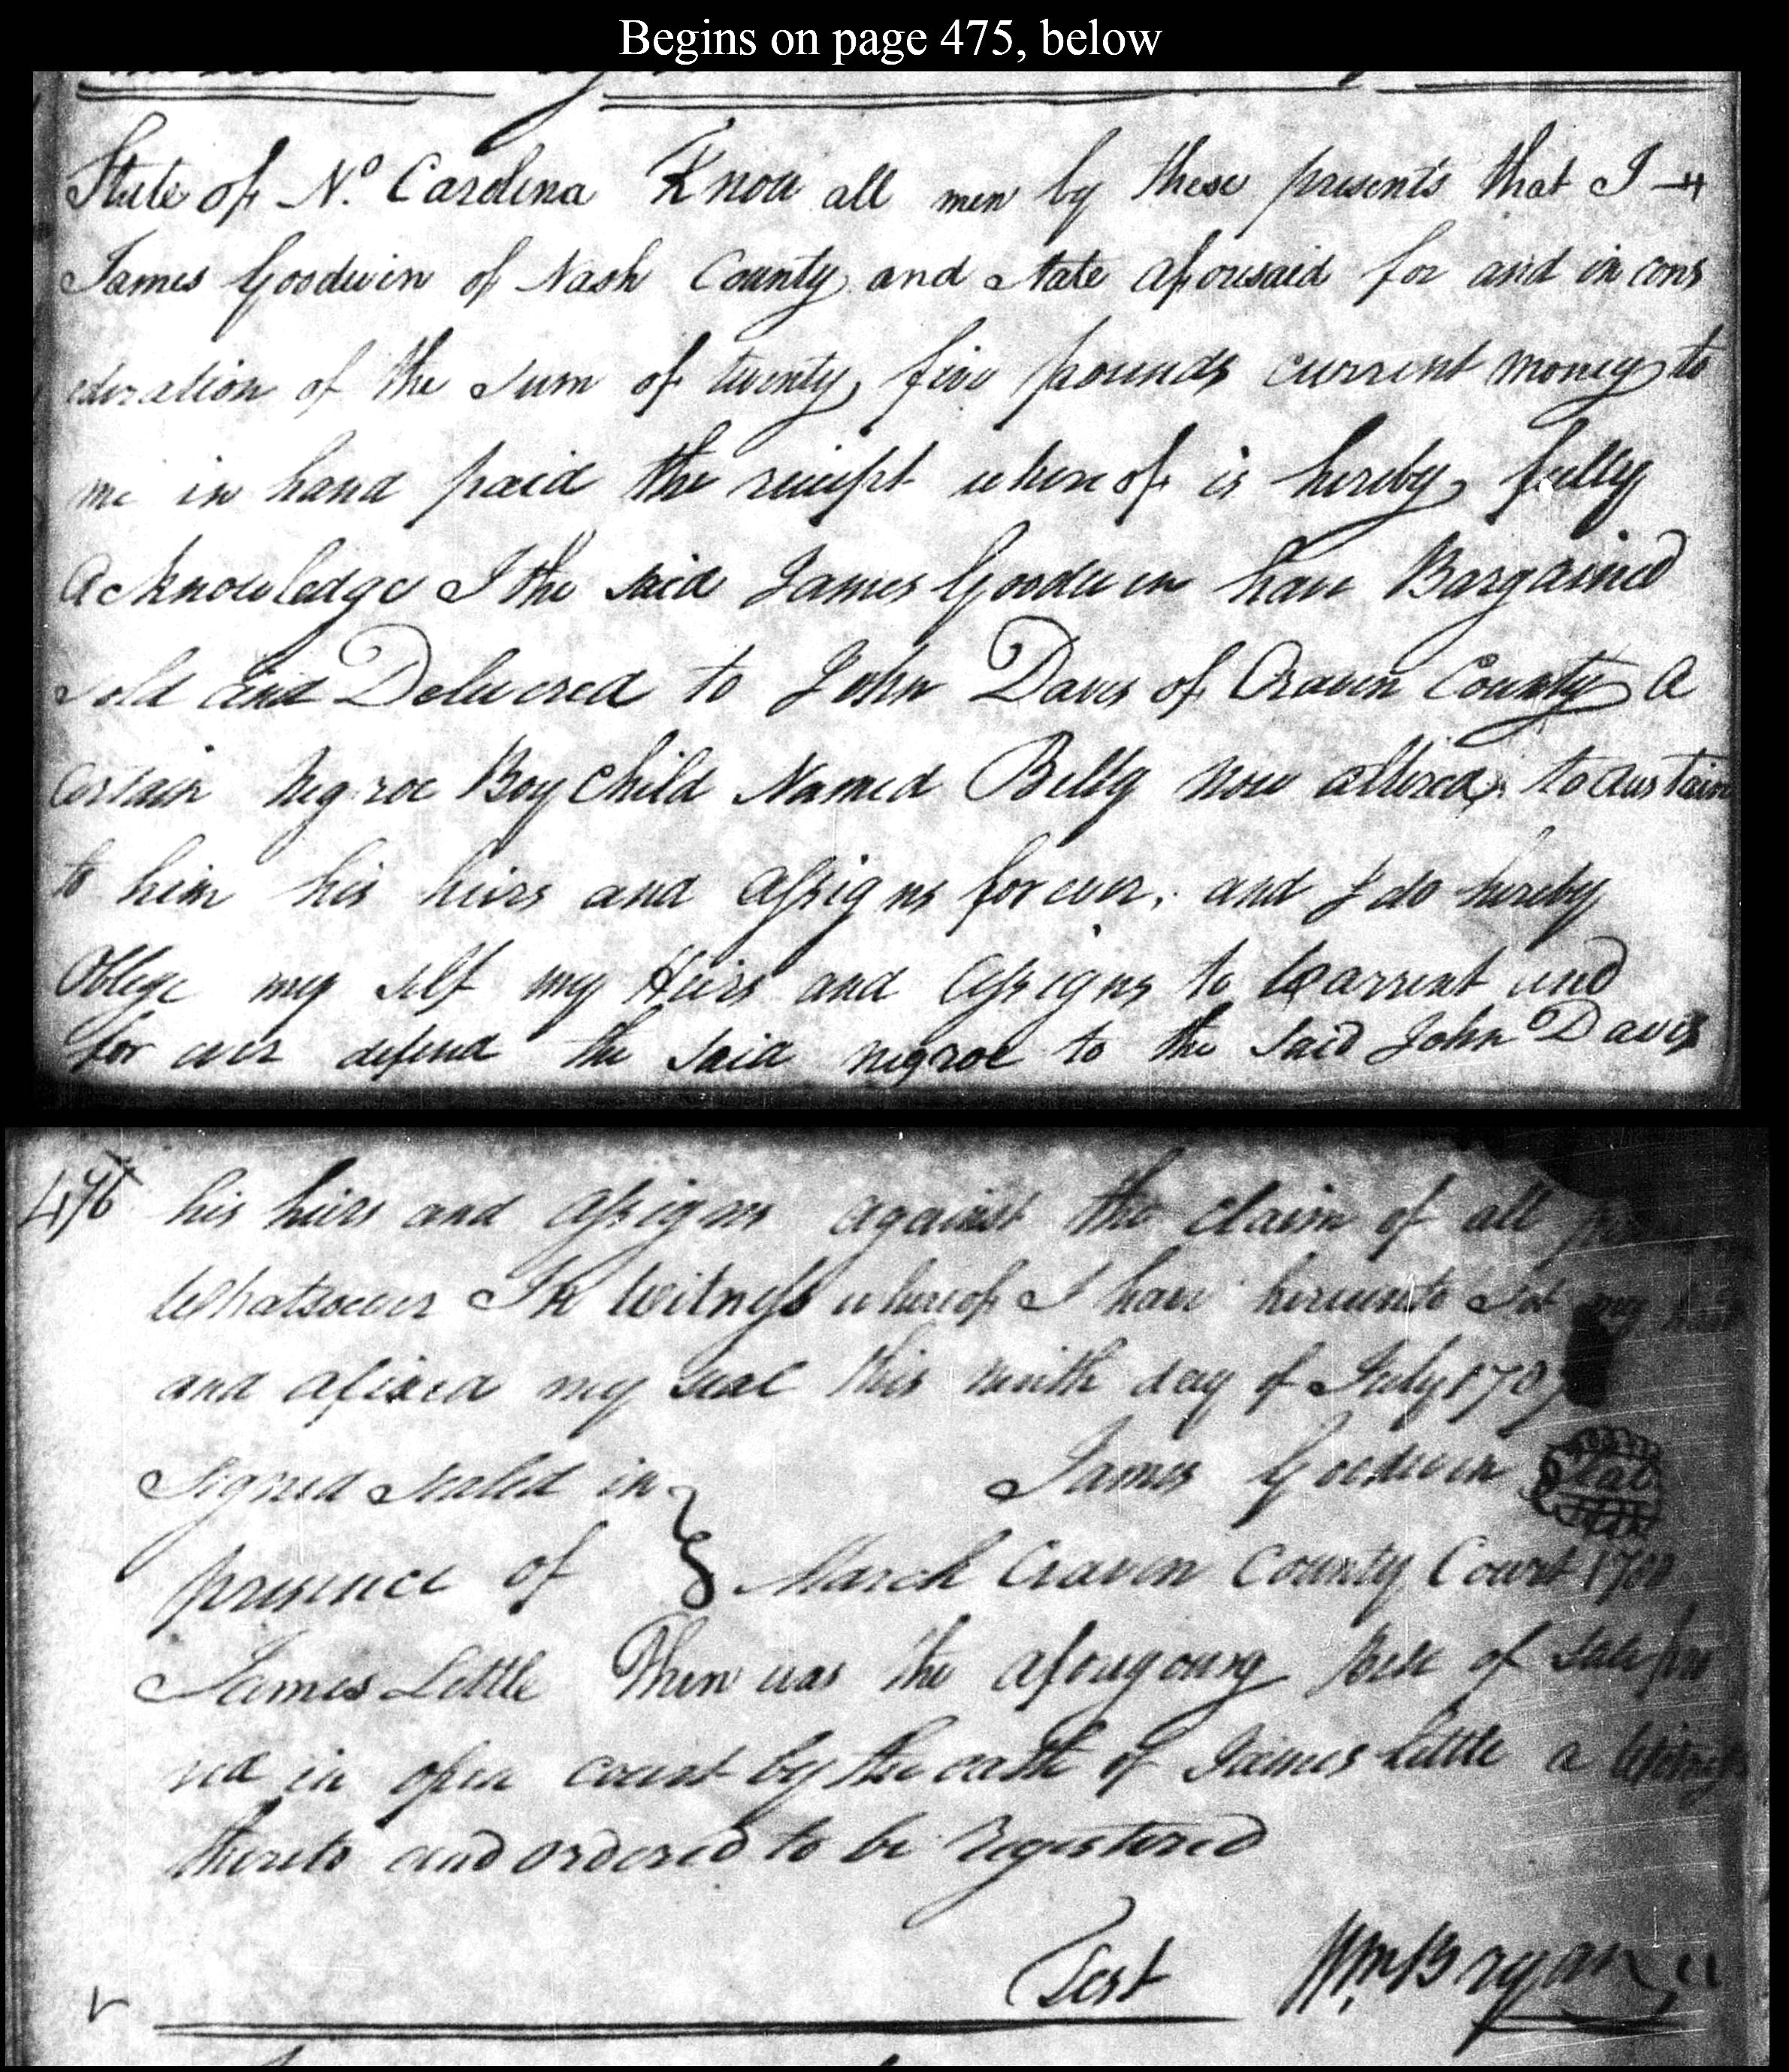 Begins on page 475, below
State of No. Carolina Know all men by these presents that I
James Goodwin of Nash County and State aforesaid for and in cons
ederation of the sum of twenty five pounds current money to
me in hand paid the receipt whereof is hereby fully
Acknowledge I the said James Goodwin have Bargained
sold and Delivered to John Davis of Craven County a
certain Negroe Boy Child Named Billy now altered to Austain
to him his heirs and assigns forever. and I do hereby
Oblege my self my Heirs and Assigns to Warrent and
for ever defend the said negroe to the said John Davis
476 his heirs and assigns against the claim of all
Whatsoever In Witness whereof I have hereunto Set my
and afixed my seal this ninth day of July
Signed Sealed in James Goodwin Seal
presence of March Craven County Court
James Little Then was the aforegoing Bill of Sale pro
ved in open court by the oath of James Little a Witness
thereto and ordered to be Registered
Test Wm. Bryan